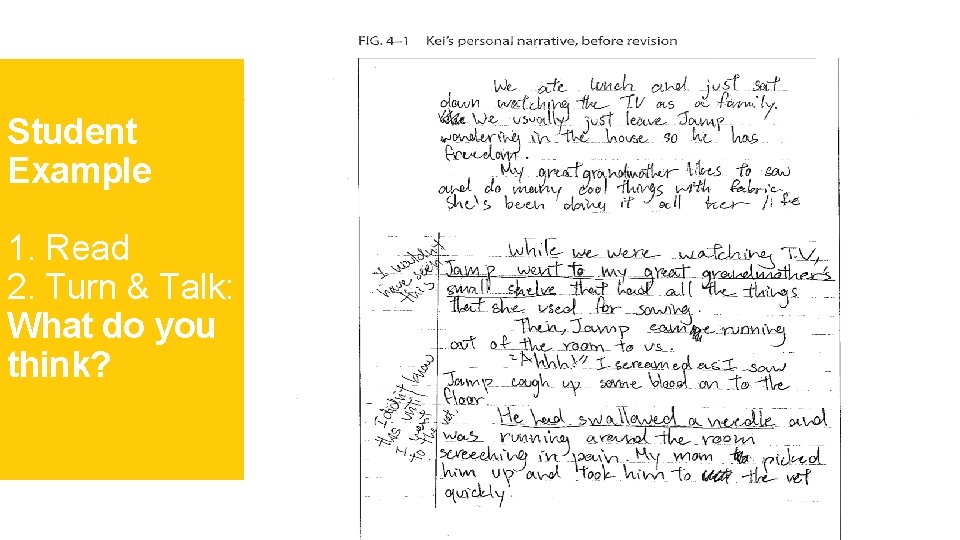 FIG. 4–1 Kei's personal narrative, before revision
Student
Example
1. Read
2. Turn & Talk:
What do you
think?
We ate lunch and just sat
down watching the T.V as a family.
We usually just leave Jamp
wondering in the house so he has
freedom.
My great grandmother likes to saw
and do many cool things with fabric.
She's been doing it all her life
While we were watching T.V,
Jamp went to my great grandmother's
small shelve that had all the things
that she used for sowing.
Then, Jamp came running
out of the room to us.
"Ahhh!" I screamed as I saw
Jamp cough up some blood on to the
floor
He had swallowed a needle and
was running around the room
screeching in pain. My mom picked
him up and took him to the vet
quickly.
I wouldn't
have seen
this
I didn't know
this until
I went
to the vet.